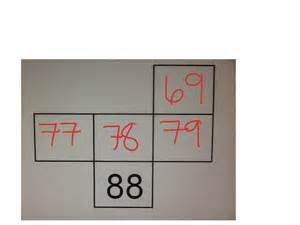 69
77 78 79
88